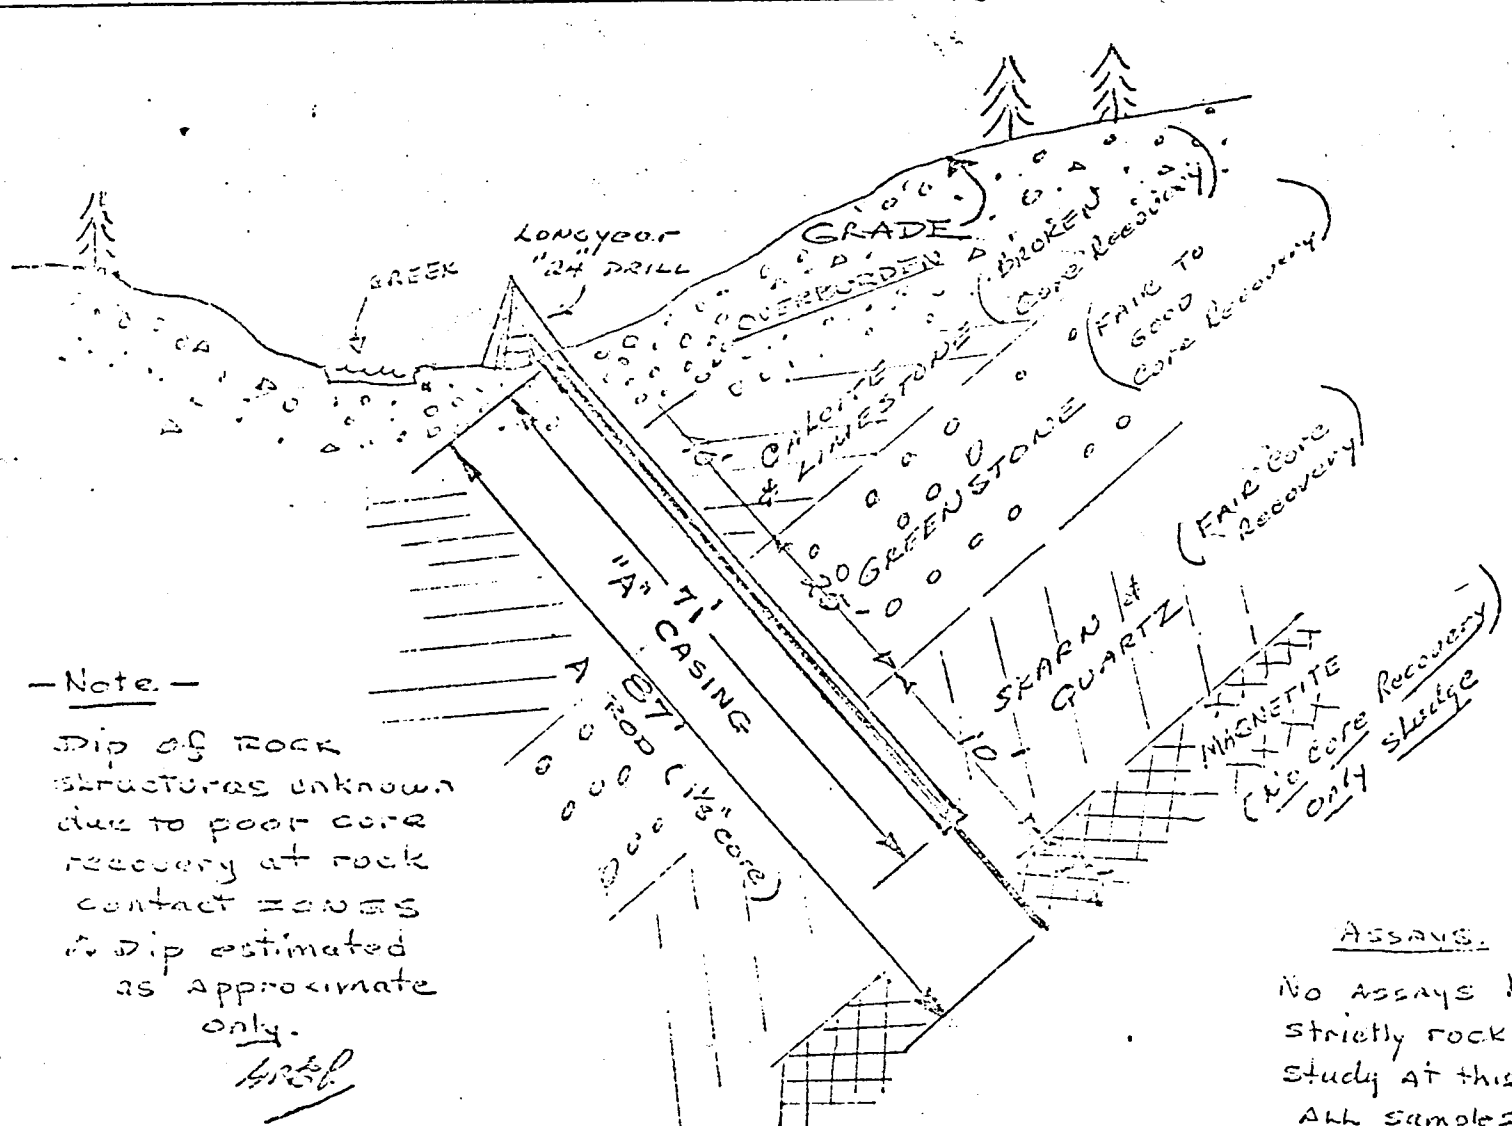 LONGYEAR
"24" DRILL
CREEK
GRADE
OVERBURDEN
(BROKEN
Core Recovery)
CHLORITE
& LIMESTONE
(FAIR TO
GOOD
Core Recovery)
GREENSTONE
25'
(FAIR Core
Recovery)
SKARN &
QUARTZ
10'
MAGNETITE
(No Core Recovery)
only sludge
71'
"A" CASING
87'
A ROD (1 1/8" core)
- Note -
Dip of ROCK
structures unknown
due to poor core
recovery at rock
contact ZONES
Dip estimated
as Approximate
only.
ASSAYS.
No ASSAYS
strictly rock
study AT this
ALL samples